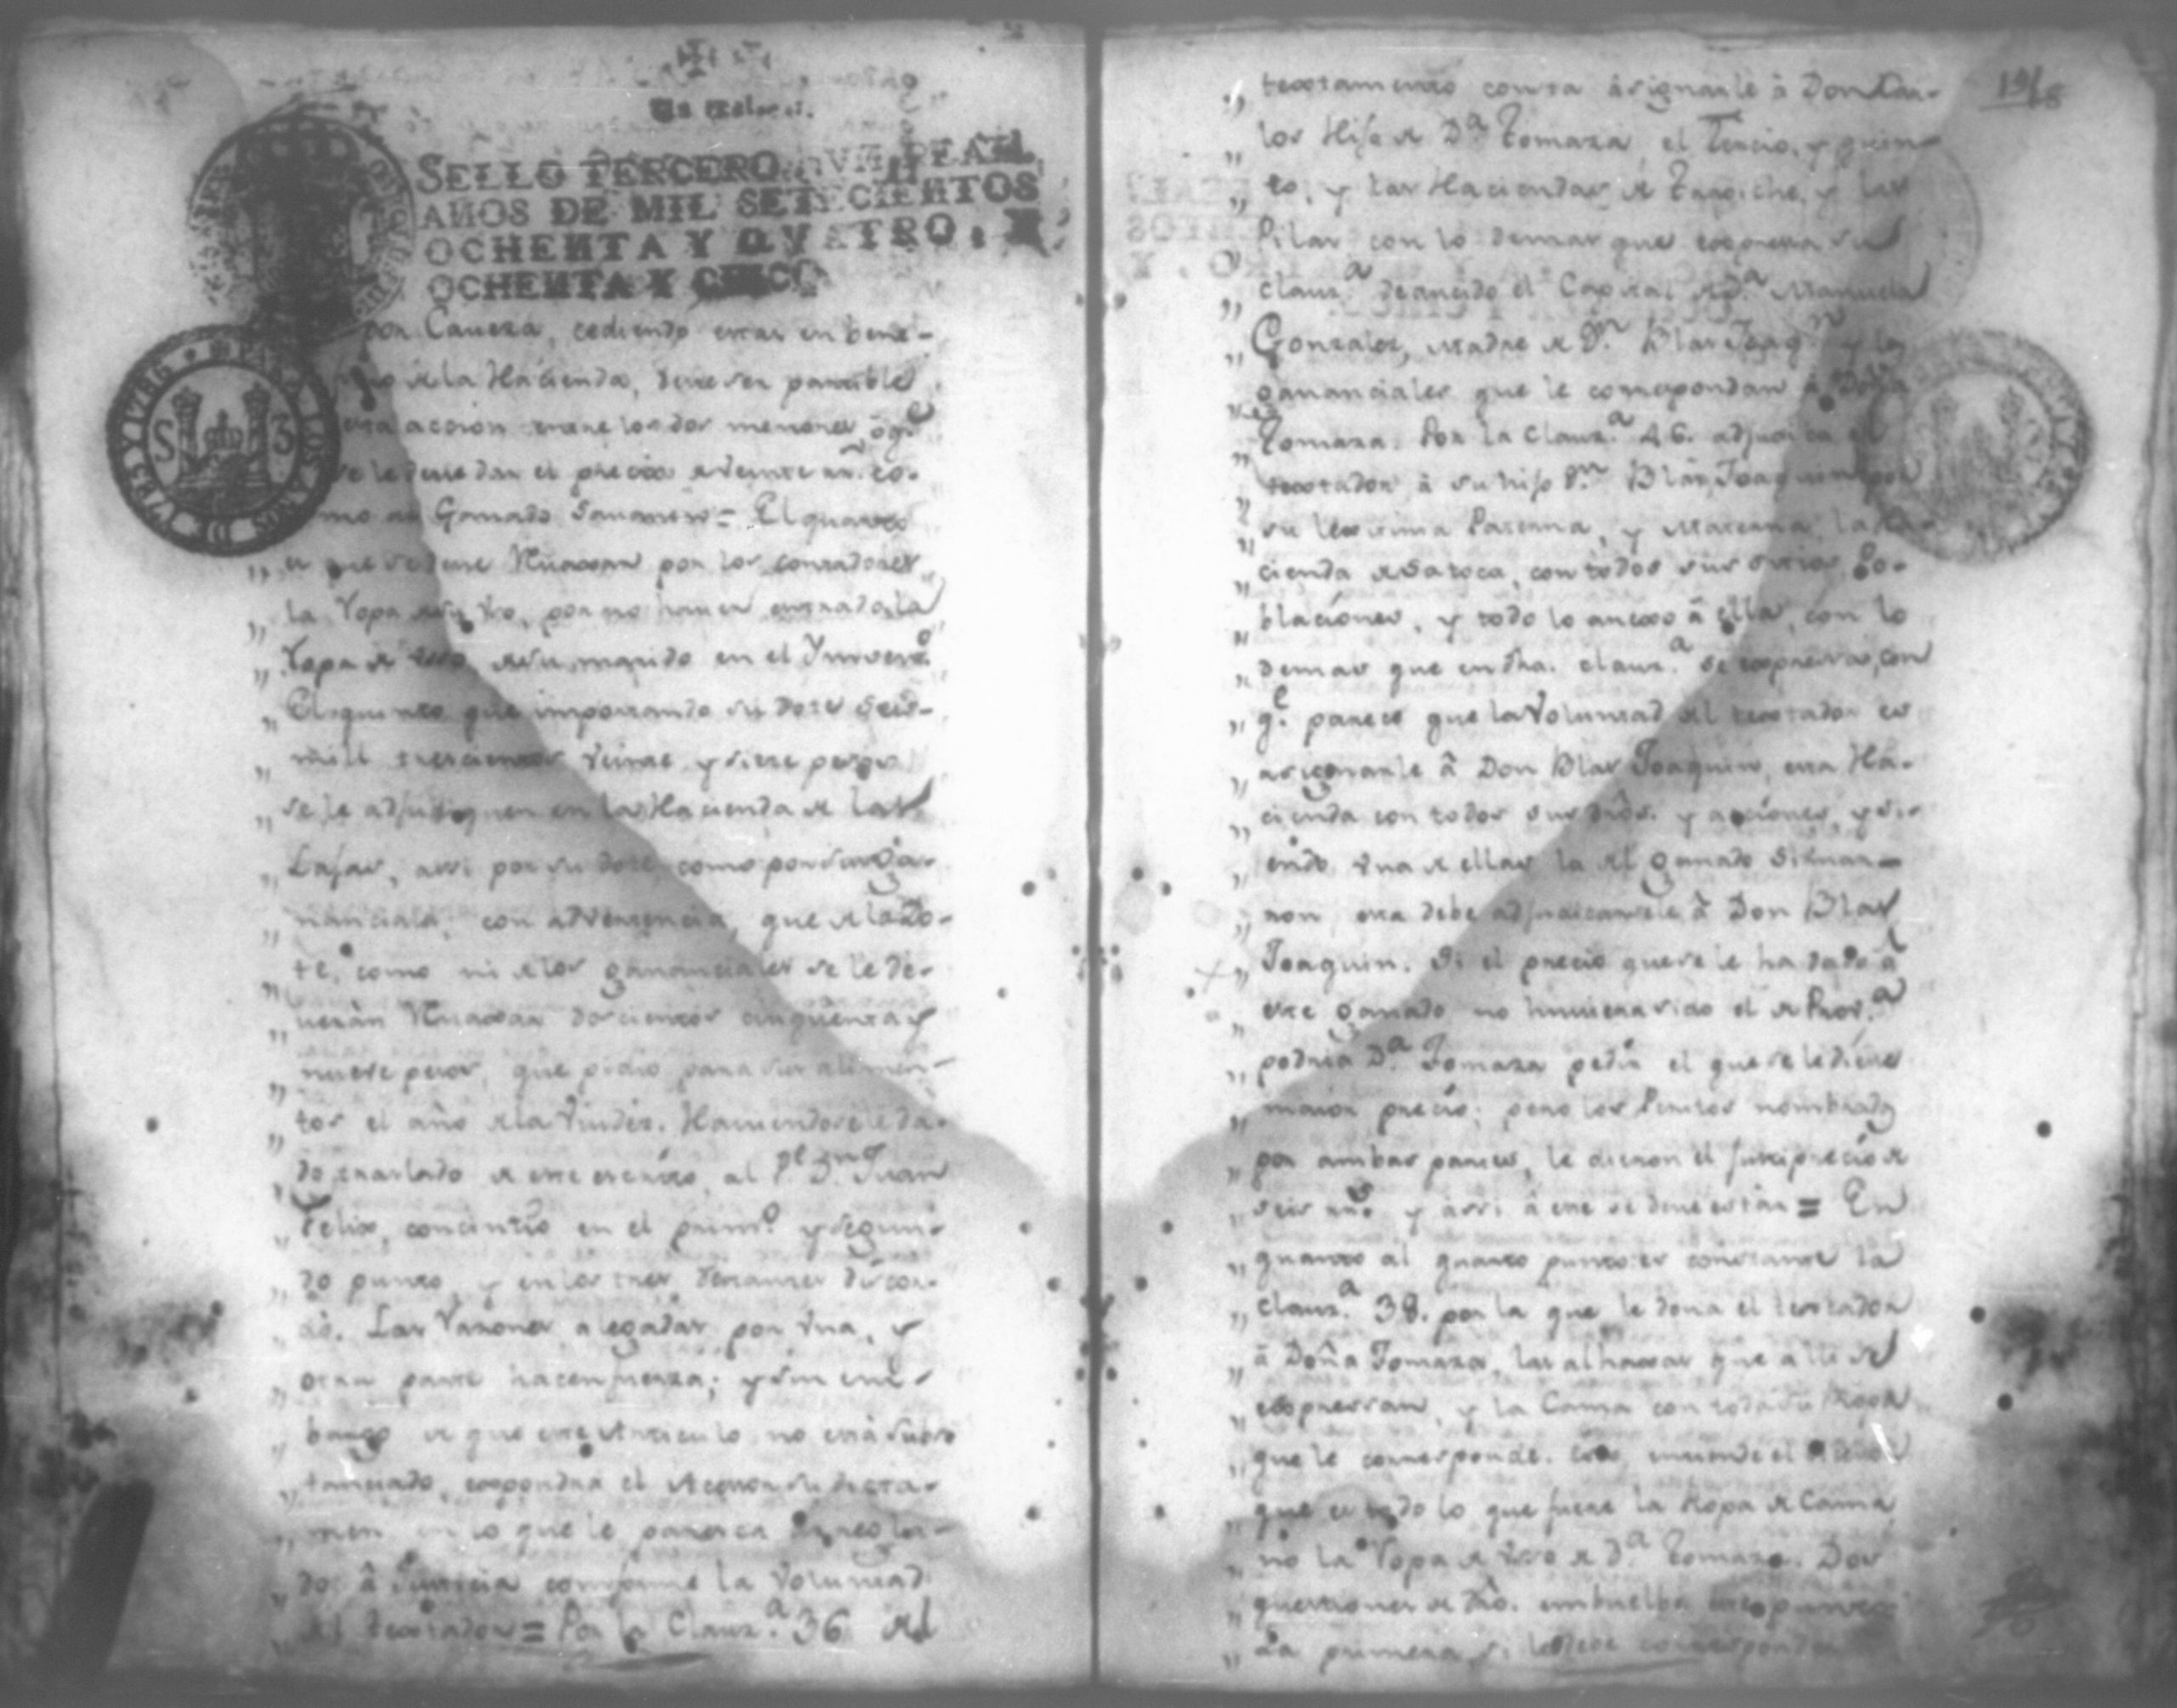 Un real.
SELLO TERCERO, VN REAL,
AÑOS DE MIL SETECIENTOS
OCHENTA Y QVATRO, Y
OCHENTA Y CINCO
por Caveza, cediendo estas en bene-
de la Hacienda, deve ser partible
esta accion entre los dos menores, ó qe
se le deve dar el precio de veinte rr.s co-
mo al Ganado Savanero = El quarto
es que se deve por los contadores
„ la Ropa de su uso, por no haver entrado la
„ Ropa de uso de su marido en el Ynventº
„ El quinto que importando su Dote Seis-
„ mill trescientos veinte y siete pesos
„ se le adjudiquen en la Hacienda de las
„ Lajas, assi por su dote, como por su ga-
„ nancial, con advertencia, que de la Do-
„ te, como ni de los gananciales se le de-
„ veràn doscientos cinquenta y
„ nueve pesos, que pidio para sus alimen-
„ tos el año de la Viudez. Haviendosele da-
„ do traslado de este escrito, al Juan
„ Felix, concintio en el prim.º y segun-
„ do punto, y en los tres restantes discor-
„ dó. Las razones alegadas por una, y
„ otra parte hacen fuerza; y sin em-
„ bargo de que este Articulo no está subs
„ tanciado, expondra el Acesor su dicta-
„ men en lo que le paresca arregla-
„ do â Justicia conforme la voluntad
„ del testador = Por la Claus.ª 36 del
19/18
„ testamento consta àsignarle à Don Car-
„ los Hijo de D.ª Tomasa, el Tercio, y quin-
„ to, y las Haciendas de Trapiche, y las
„ Pilas con lo demas que expresa su
„ claus.ª el Capital de D.ª Manuela
„ Gonzales, Madre de D.n Blas Joaq.n y los
„ gananciales que le correspondan à Doña
„ Tomasa. Por la Claus.ª 46. adjudica el
„ testador à su hijo D.n Blas Joaquin por
„ su lexitima Paterna, y Materna, la Ha-
„ cienda de Satoca, con todos sus sitios, Po-
„ blaciones, y todo lo anexo â ella, con lo
„ demas que en dha. claus.ª se expresa, con
„ qe parece que la Voluntad del testador es
„ asignarle â Don Blas Joaquin, esta Ha-
„ cienda con todos sus dros. y acciones, y si-
„ endo una de ellas la del ganado Simar-
„ ron, esta debe adjudicarsele à Don Blas
„ Joaquin. Si el precio que se le ha dado à
„ este ganado no huviera sido el de Prov.ª
„ podria D.ª Tomasa pedir el que se le diese
„ maior precio; pero los Peritos nombrados
„ por ambas partes, le dieron el justi precio de
„ seis rr.s y assi â este se deve estàr = En
„ quanto al quarto punto es constante la
„ claus.ª 38. por la que le dona el testador
„ à Doña Tomasa, las alhaxas que alli se
„ expressan, y la Cama con toda su Ropa
„ que le corresponde. Esto, entiende el Acesor
„ que es todo lo que fuere la Ropa de Cama
„ no la Ropa de uso de D.ª Tomasa. Dos
„ questiones de dro. embuelbe este punto
„ La primera, si le debe corresponder